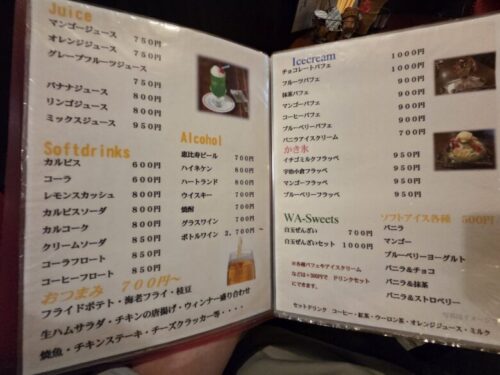 Juice
マンゴージュース 750円
オレンジジュース 750円
グレープフルーツジュース
750円
バナナジュース 800円
リンゴジュース 800円
ミックスジュース 950円
Softdrinks
カルピス 600円
コーラ 600円
レモンスカッシュ 800円
カルピスソーダ 800円
カルコーク 800円
クリームソーダ 850円
コーラフロート 850円
コーヒーフロート 850円
Alcohol
恵比寿ビール 700円
ハイネケン 800円
ハートランド 800円
ウイスキー 700円
焼酎 700円
グラスワイン 700円
ボトルワイン 2,700円~
おつまみ 700円~
フライドポテト・海老フライ・枝豆
生ハムサラダ・チキンの唐揚げ・ウィンナー盛り合わせ
焼魚・チキンステーキ・チーズクラッカー等・・・・
Icecream
チョコレートパフェ 1000円
フルーツパフェ 1000円
抹茶パフェ 900円
マンゴーパフェ 900円
コーヒーパフェ 900円
ブルーベリーパフェ 900円
バニラアイスクリーム 700円
かき氷
イチゴミルクフラッペ 950円
宇治小倉フラッペ 950円
マンゴーフラッペ 950円
ブルーベリーフラッペ 950円
WA-Sweets
白玉ぜんざい 700円
白玉ぜんざいセット 1000円
※各種パフェやアイスクリーム
などは+300円で、ドリンクセット
にできます。
ソフトアイス各種 500円
バニラ
マンゴー
ブルーベリーヨーグルト
バニラ&チョコ
バニラ&抹茶
バニラ&ストロベリー
セットドリンク コーヒー・紅茶・ウーロン茶・オレンジジュース・ミルク